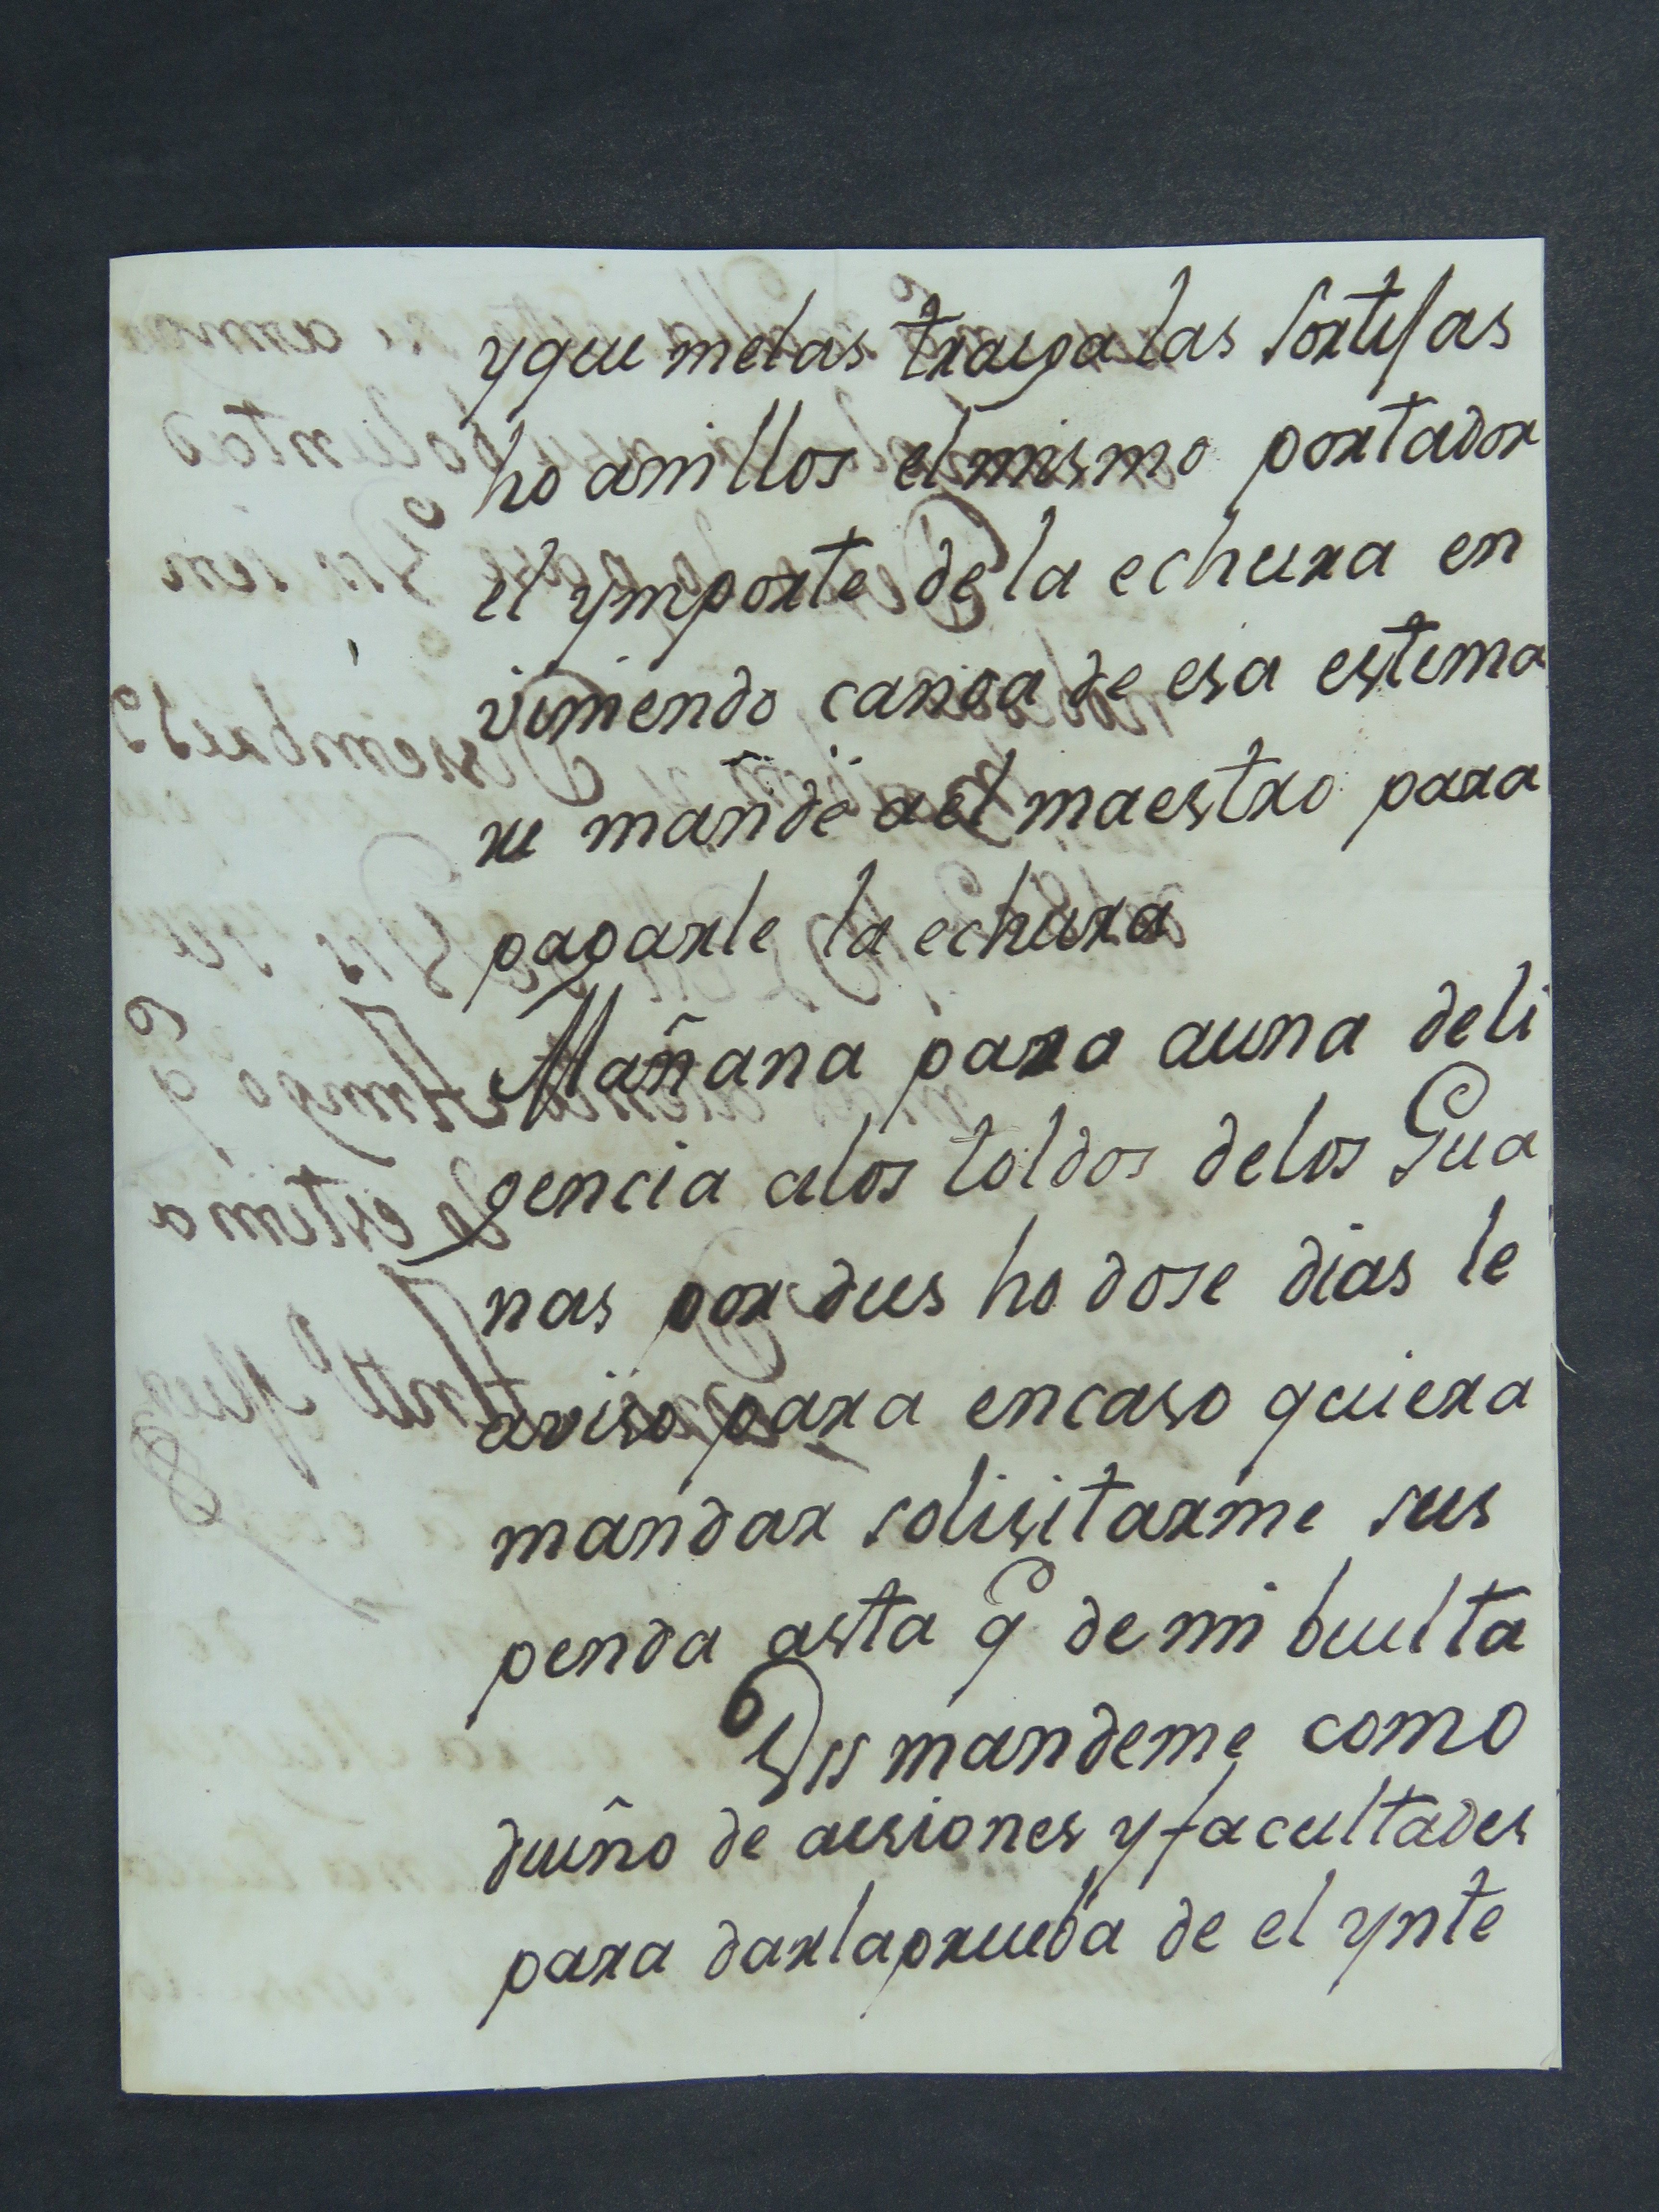 yque melas traiga las sortijas
ho anillos elmismo portador
el ymporte de la echura en
viniendo canoa de esa estima
re mandé ael maestro para
pagarle la echura
Mañana paso auna deli
gencia alos toldos delos Gua
nas por dies ho dose dias le
aviso para encaso quiera
mandar solisitarme sus
penda asta q̃ de mi buelta
mandeme como
dueño de acsiones y facultades
para darlaprueba de el ynte